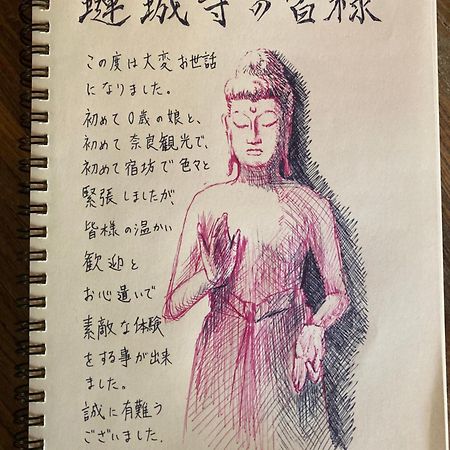 璉城寺の皆様
この度は大変お世話
になりました。
初めて0歳の娘と、
初めて奈良観光で、
初めて宿坊で色々と
緊張しましたが、
皆様の温かい
歓迎と
お心遣いで
素敵な体験
をする事が出来
ました。
誠に有難う
ございました.